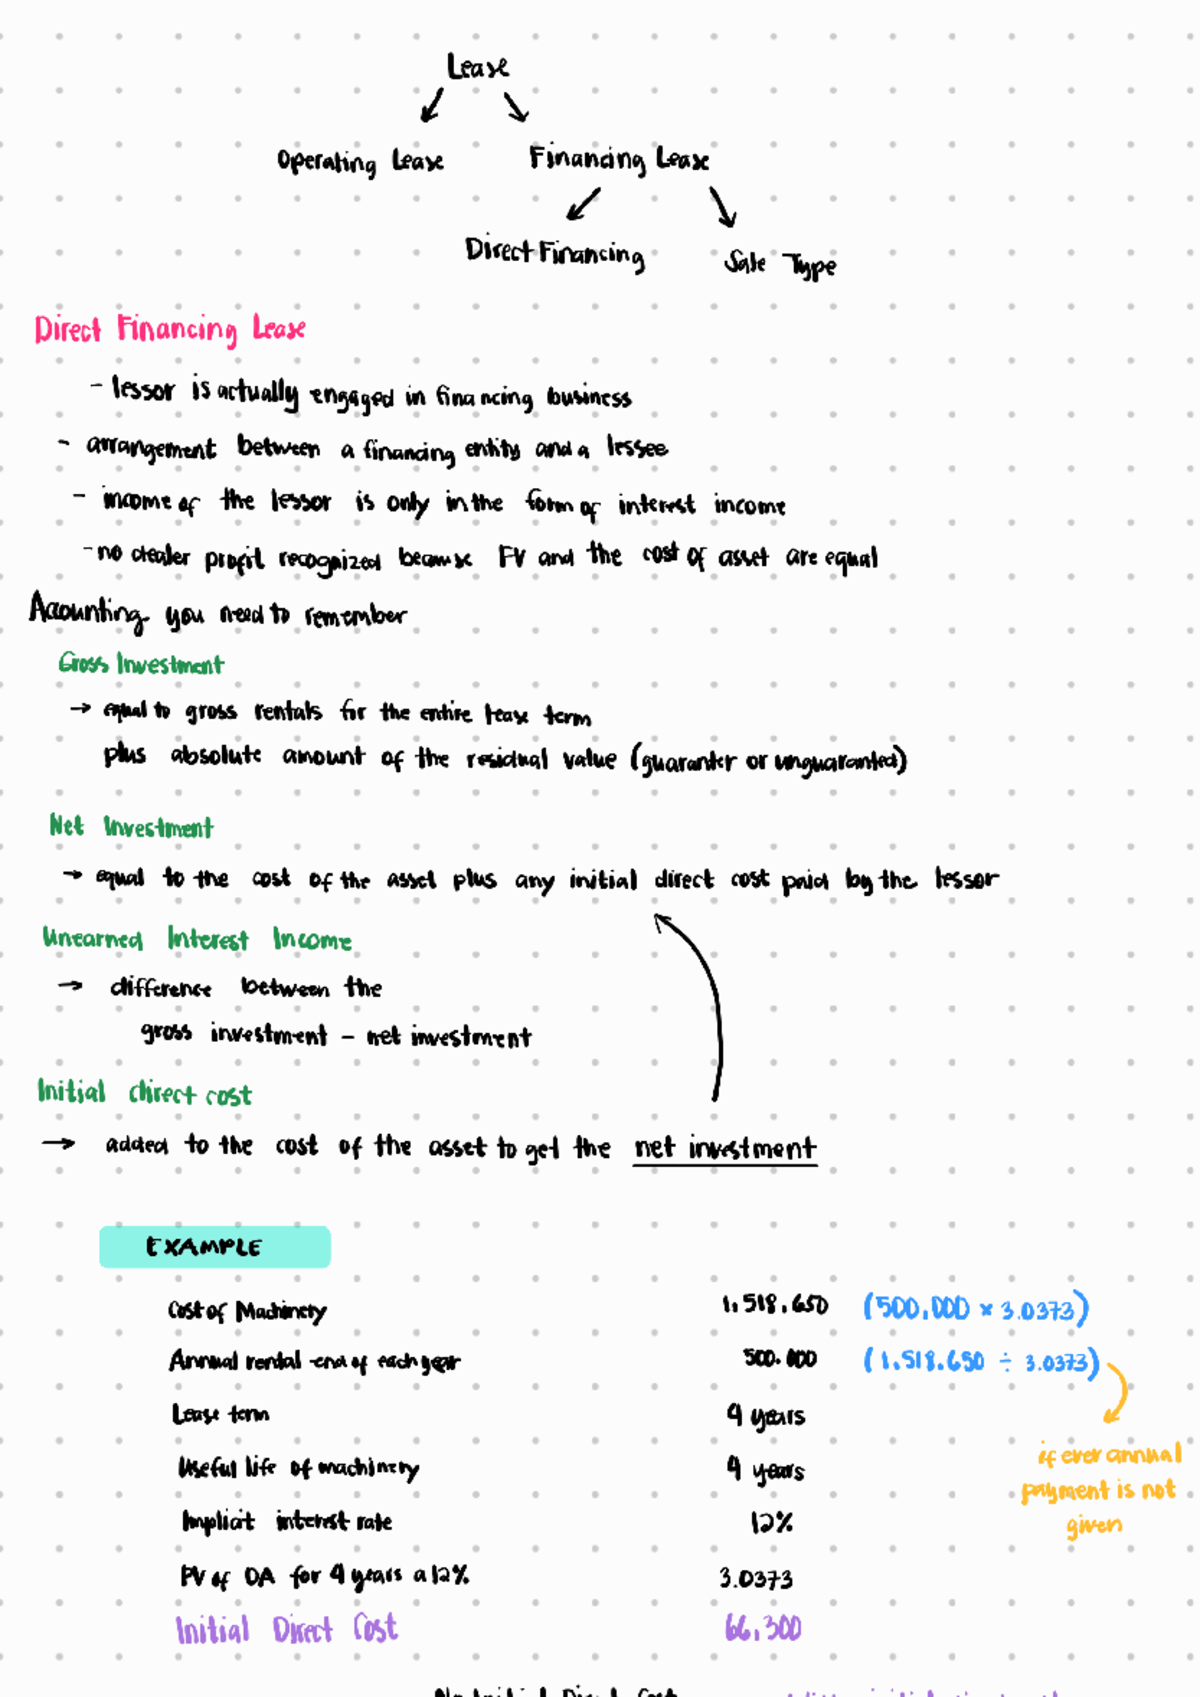 Lease
Operating Lease Financing Lease
Direct Financing Sale Type
Direct Financing Lease
- lessor is actually engaged in financing business
- arrangement between a financing entity and a lessee
- income of the lessor is only in the form of interest income
- no dealer profit recognized because FV and the cost of asset are equal
Accounting you need to remember
Gross Investment
→ equal to gross rentals for the entire lease term
plus absolute amount of the residual value (guaranter or unguaranted)
Net Investment
→ equal to the cost of the asset plus any initial direct cost paid by the lessor
Unearned Interest Income
→ difference between the
gross investment - net investment
Initial direct cost
→ added to the cost of the asset to get the net investment
EXAMPLE
Cost of Machinery 1,518,650 (500,000 × 3.0373)
Annual rental - end of each year 500,000 (1,518,650 ÷ 3.0373)
Lease term 4 years
if ever annual
payment is not
given
Useful life of machinery 4 years
Implicit interest rate 12%
PV of OA for 4 years a 12% 3.0373
Initial Direct Cost 66,300
No Initial Direct Cost